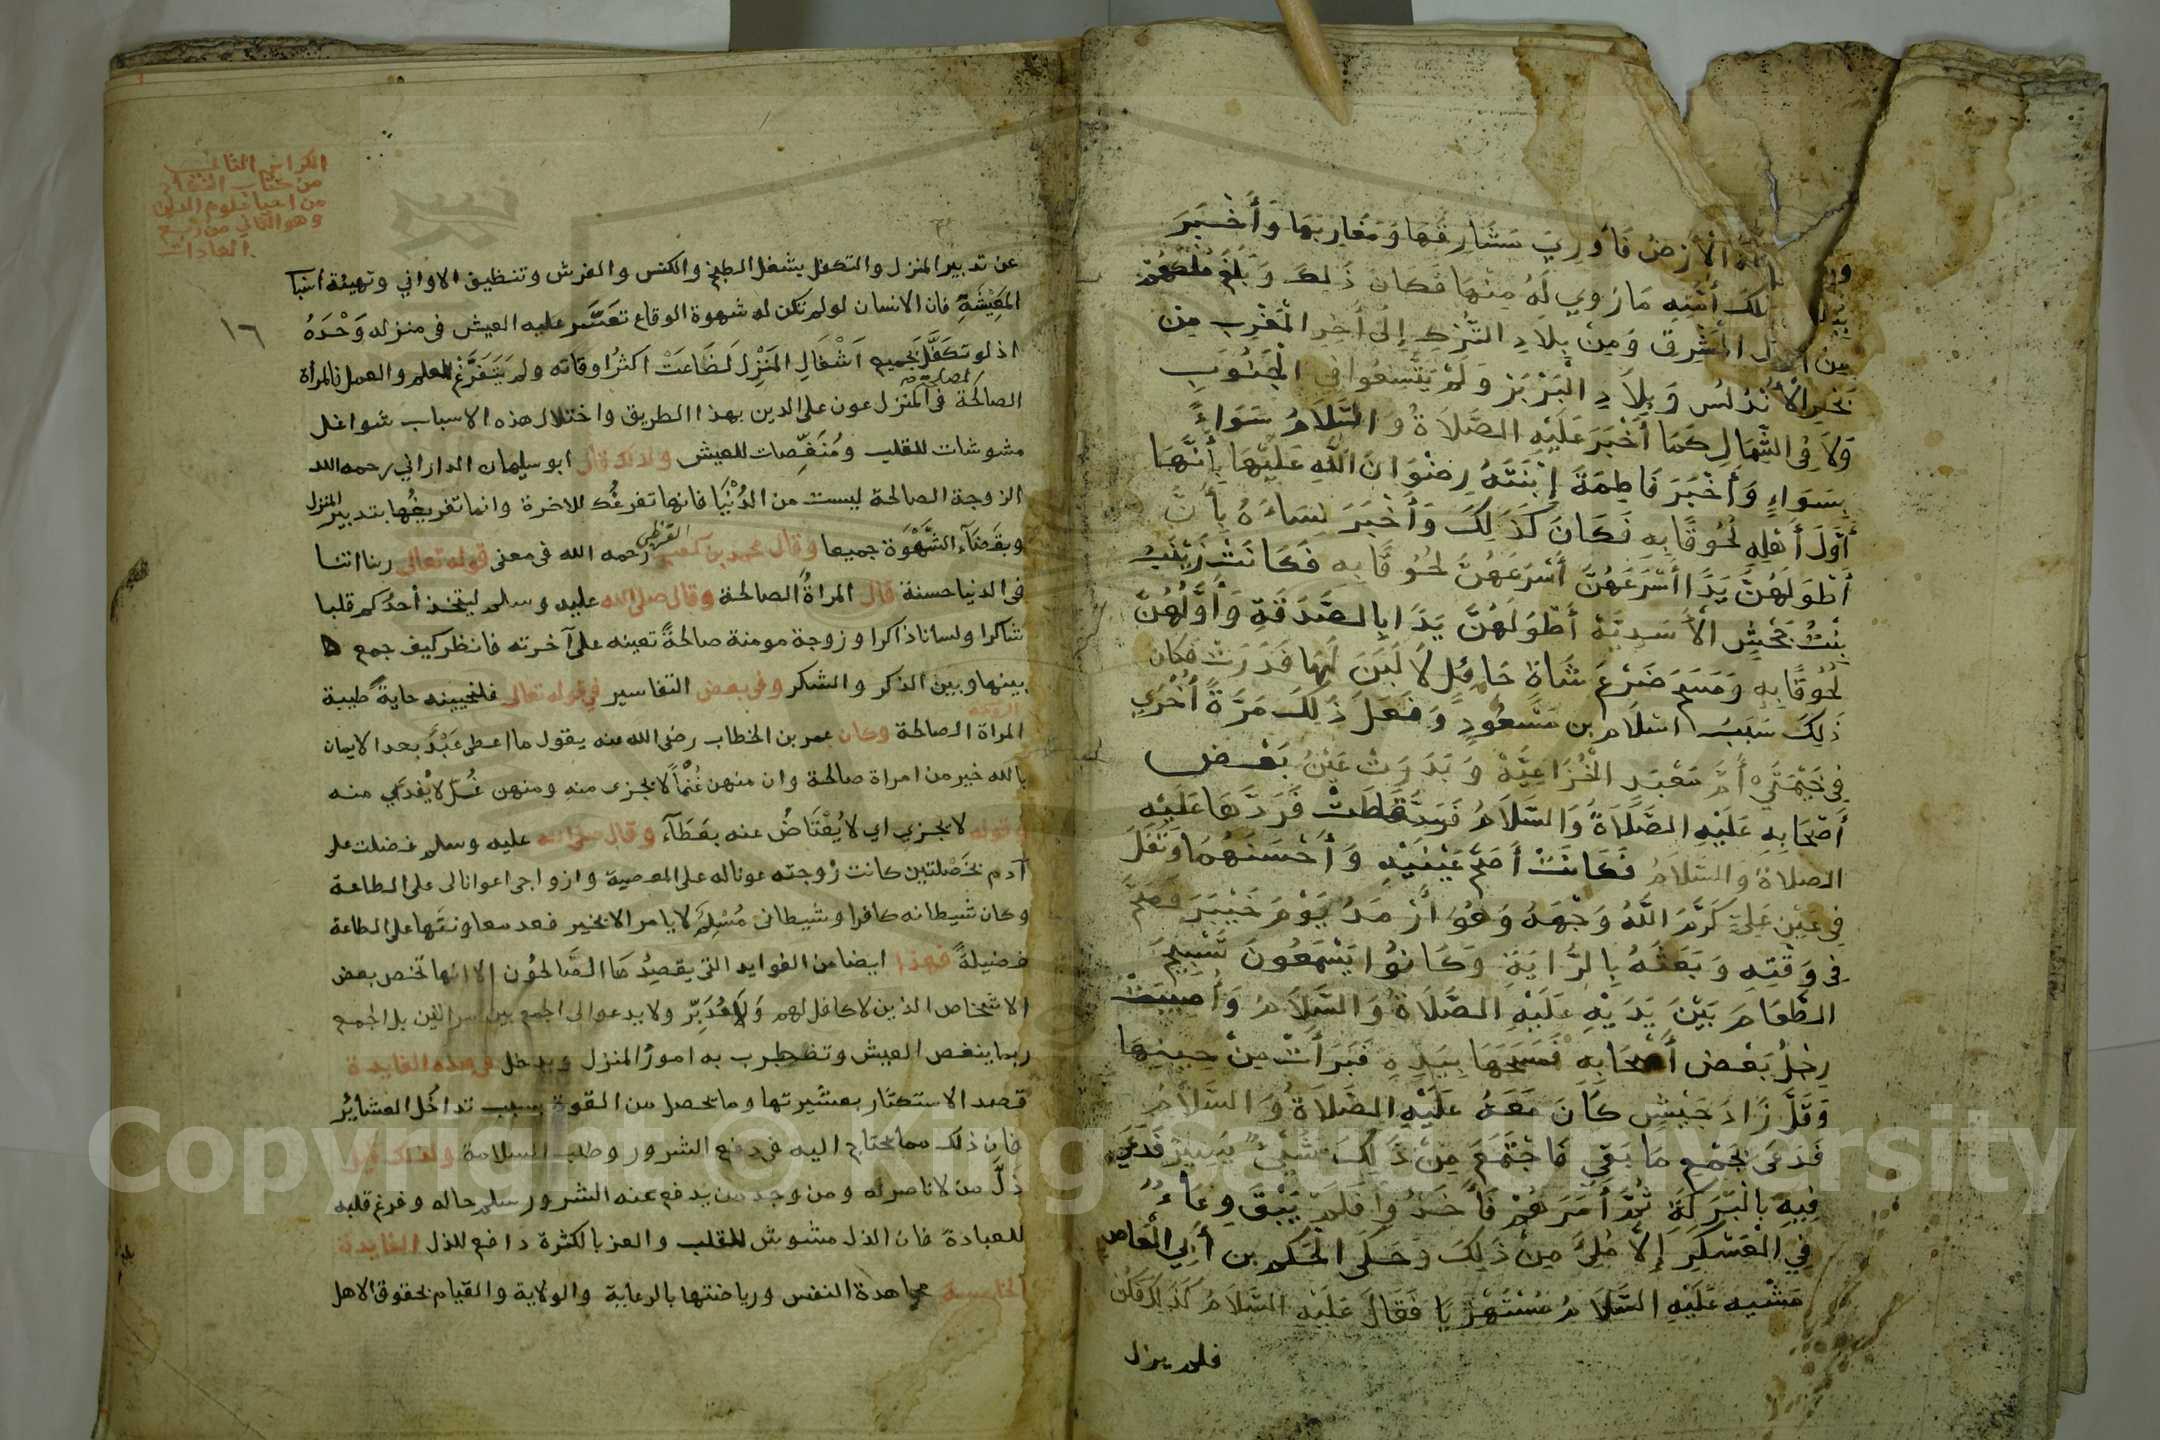 الأَرْضُ فَأُورِيَ مَشَارِقُهَا وَمَغَارِبَهَا وَأَخْبَرَ
أُمَّتِهِ مَا رُوِي لَهُ مِنْهَا فَكَانَ ذَلِكَ وَبَلَغَ مُلْكُهُمْ
مِنْ الْمَشْرِقِ وَمِنْ بِلَادِ التُّرْكِ إِلَى أَخِرِ الْمَغْرِبِ مِن
بَحْرِ الْأَنْدَلُسِ وَبِلَادِ الْبَرْبَرِ وَلَمْ يَتَّسِعُوا فِي الْجَنُوبِ
وَلَا فِي الشِّمَالِ كَمَا أَخْبَرَ عَلَيْهِ الصَّلَاةُ وَالسَّلَامُ سَوَاءً
بِسَوَاءٍ وَأَخْبَرَ فَاطِمَةَ إِبْنَتَهُ رِضْوَانَ اللَّهِ عَلَيْهَا بِأَنَّهَا
أَوَّلَ أَهْلِهِ لُحُوقًا بِهِ فَكَانَ كَذَلِكَ وَأَخْبَرَ نِسَاءَهُ بِأَنَّ
أَطْوَلَهُنَّ يَدًا أَسْرَعَهُنَّ أَسْرَعَهُنَّ لُحُوقًا بِهِ فَكَانَتْ زَيْنَبُ
بِنْتُ جَحْشٍ الْأَسَدِيَّة أَطْوَلَهُنَّ يَدًا بِالصَّدَقَةِ وَأَوَّلُهُنَّ
لُحُوقًا بِهِ وَمَسَحَ ضَرْعَ شَاة حَائِل لَا لَبَنَ لَهَا فَدَرَتْ فكان
ذَلِكَ سَبَبُ اسْلَام بن مَسْعُودٍ وَفَعَلَ ذَلِكَ مَرَّةً أُخْرَى
فِي خَيْمَتَيْ أُمِّ مَعْبَدِ الْخُزَاعِيَّة وَبَدَرَتْ عَيْنُ بَعْض
أَصْحَابِه عَلَيْهِ الصَّلَاةُ وَالسَّلَامُ فَسَقَطَتْ فَرَدَّهَا عَلَيْهِ
الصلَاةُ وَالسَّلَامُ فَكَانَتْ أَصَحَّ عَيْنَيْهِ وَأَحْسَنَهُمَا وَتَفَلَ
فِي عَيْنِ عَلِيّ كَرَّمَ اللَّهُ وَجْهَهُ وَهُوَ أَرْمَدُ يَوْمَ خَيْبَرَ فَصَحَّ
فِي وَقْتِهِ وَبَعَثَهُ بِالرَّايَةِ وَكَانُوا يَسْمَعُونَ تَسْبِيحَ
الطَّعَامِ بَيْنَ يَدَيْهِ عَلَيْهِ الصَّلَاةُ وَالسَّلَامُ وَأُصِيبَتْ
رِجْلُ بَعْض أَصْحَابِهِ فَمَسَحَهَا بِيَدِهِ فَبَرَأَتْ مِنْ حِينِهَا
وَقَلَّ زَادَ جَيْشٍ كَانَ مَعَهُ عَلَيْهِ الصَّلَاةُ وَالسَّلَامُ
فَدَعَى بِجَمْعِ مَا بَقِي فَاجْتَمَعَ مِنْ ذَلِكَ شَيْءٌ يَسِيرٌ فَدَعَى
فِيهِ بِالْبَرَكَةِ ثُمَّ أَمَرَهُمْ فَأَخَذُوا فَلَمْ يَبْقَ وِعَاءٌ
فِي الْعَسْكَرِ إِلَّا مُلِئَ مِنْ ذَلِكَ وَحَكَى الْحَكَم بن أَبِي الْعَاص
مَشْيه عَلَيْهِ السَّلَامُ مُسْتَهْزِيًا فَقَالَ عَلَيْهِ السَّلَامُ كَذَلِكَ فَكُنْ
فلم يزل
الكراس الثاني
من كتاب النكاح
من احيا علوم الدين
وهو الثاني من ربع
العادات
١٦
عن تدبير المنزل والتكفل بشغل الطبخ والكنس والفرش وتنظيف الاواني وتهيئة اسبا
المَعِيْشَةِ فان الانسان لو لم تكن له شهوة الوقاع تعَسَّر عليه العيش في منزله وَحْدَهُ
اذ لو تكَفَّلَ بجميع اَشْغَالِ المَنْزِلِ لَضَاعَتْ اكثرُ اوقاته ولم يَتَفَرَّغْ للعلم والعمل فالمرأة
الصالحة المصلحة في المنزل عون على الدين بهذا الطريق واختلال هذه الاسباب شواغل
مشوشات للقلب ومُنَغِّصات للعيش ولذلك قال ابو سليمان الداراني رحمه الله
الزوجة الصالحة ليست من الدُنْيَا فانها تفرغُك للاخرة وانما تفريغُها بتدبير المنزل
وبقَضَآء الشَّهْوَة جميعا وقال محمد بن كعب القرظي رحمه الله في معنى قوله تعالى ربنا اتنا
في الدنيا حسنة قال المراةُ الصالحة وقال صلى الله عليه وسلم ليتخذ أحدُكم قلبا
شاكرا ولسانا ذاكرا وزوجة مومنة صالحةً تعينه على آخرته فانظر كيف جمع
بينها وبين الذكر والشكر وفي بعض التفاسير في قوله تعالى فلنحيينه حياةً طيبة
المراة الصالحة وكان عمر بن الخطاب رضى الله عنه يقول ما اعطى عَبْدٌ بعد الايمان
بالله خير من امراة صالحة وان منهن غُنْمًا لا يجزى منه ومنهن غُلّ لا يُفْدَى منه
وقوله لا يجزي اي لا يُعْتَاضُ عنه بعَطَآء وقال صلى الله عليه وسلم فضلت على
آدم بخَصْلتين كانت زوجته عونا له على المعصية وازواجى اعوانا لى على الطاعة
وكان شيطانه كافرا وشيطاني مُسْلِم لا يامر الا بخير فعد معاونتَها على الطاعة
فضيلةً فهذا ايضا من الفوايد التي يقصِدُها الصَّالحُون الا انها تخص بعض
الاشخاص الذين لا كافل لهم وَلَا مُدَبِّر ولا يدعو الى الجمع بين امراتين بل الجمع
ربما ينغص العيش وتضطرب به امورُ المنزل ويدخل في هذه الفايدة
قصد الاستكثار بعشيرتها وما يحصل من القوة بسبب تداخُل العشايُر
فان ذلك مما يحتاج اليه في دفع الشرور وطلب السلامة ولذلك قيل
ذَلَّ من لا ناصر له ومن وجد من يدفع عنه الشرور سلم حاله وفرغ قلبه
للعبادة فان الذل مشوش للقلب والعز بالكثرة دافع للذل الفايدة
الخامسة مجاهدة النفس ورياضتها بالرعاية والولاية والقيام بحقوق الاهل
Copyright © King Saud University